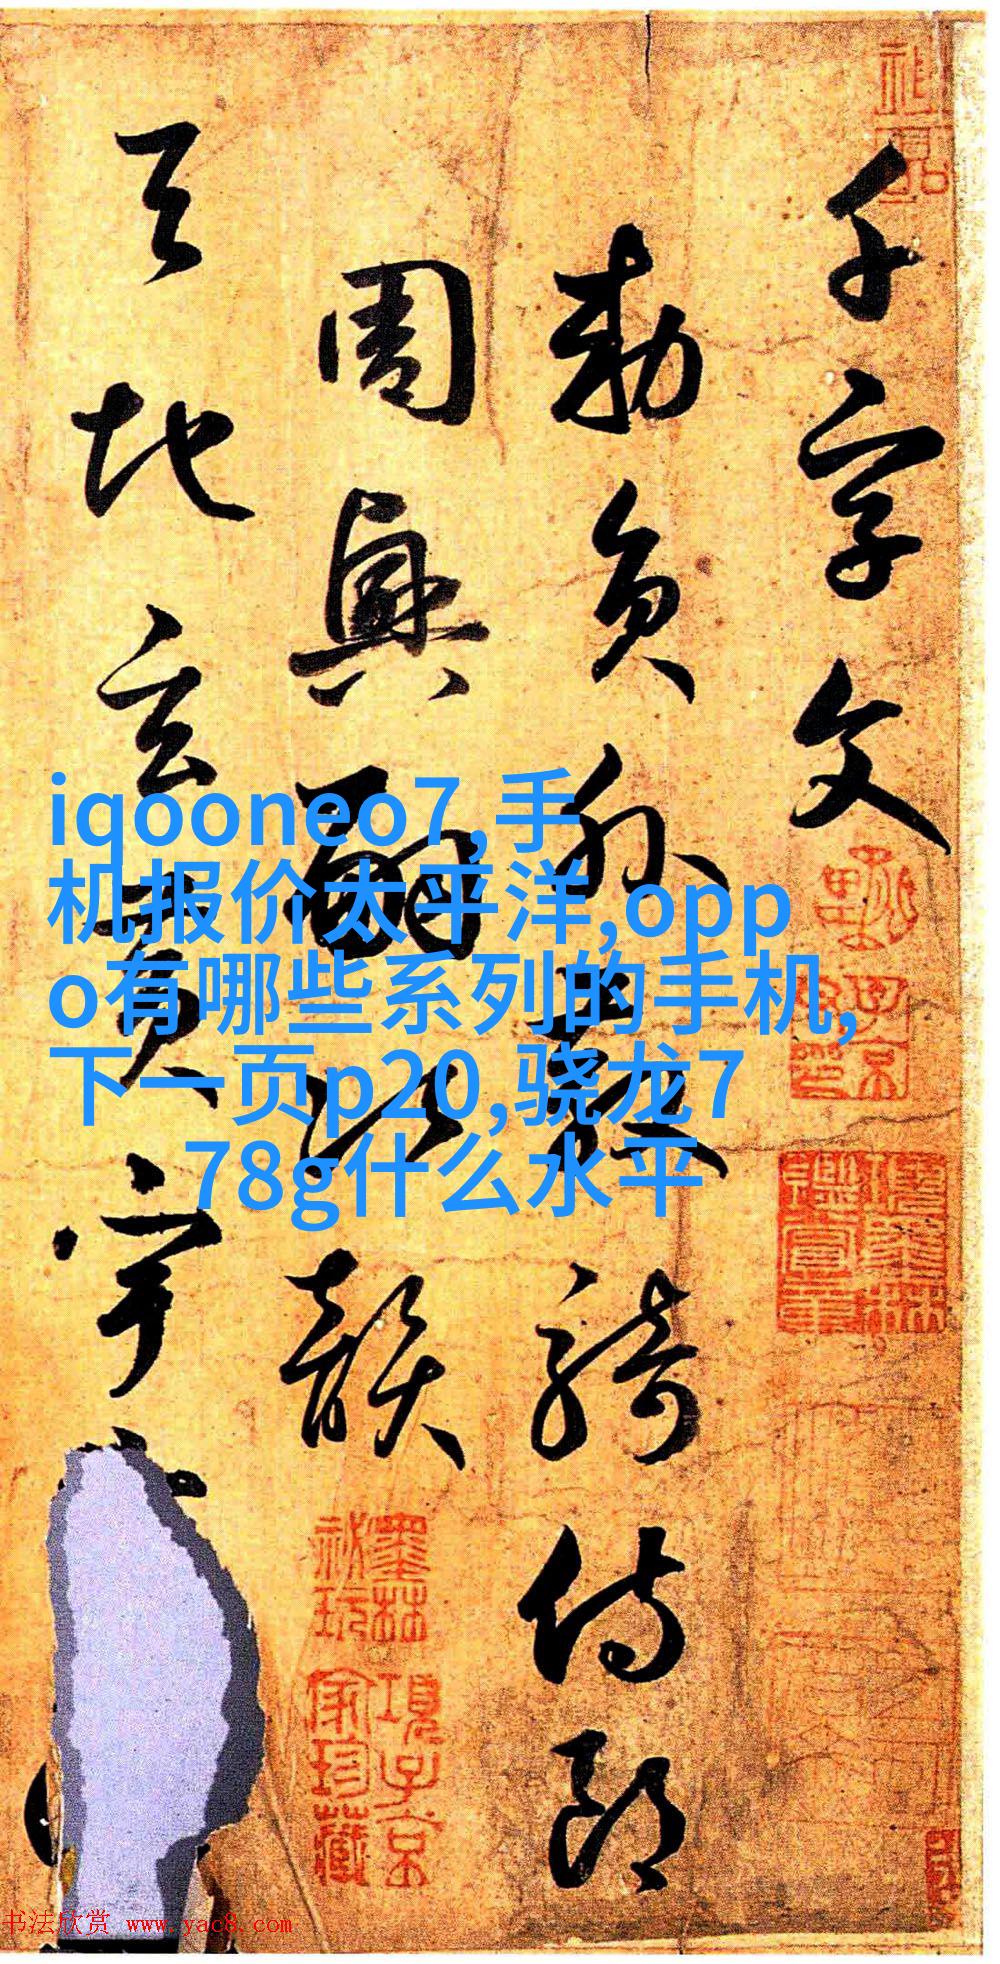 千字文
勅員外散騎侍郎
周興嗣次韻
天地玄黃宇
iqooneo7,手
机报价太平洋,opp
o有哪些系列的手机,
下一页p20,骁龙7
78g什么水平
墨林秘玩
項子京家珍藏
项墨林鑑賞章
书法欣赏 www.yac8.com